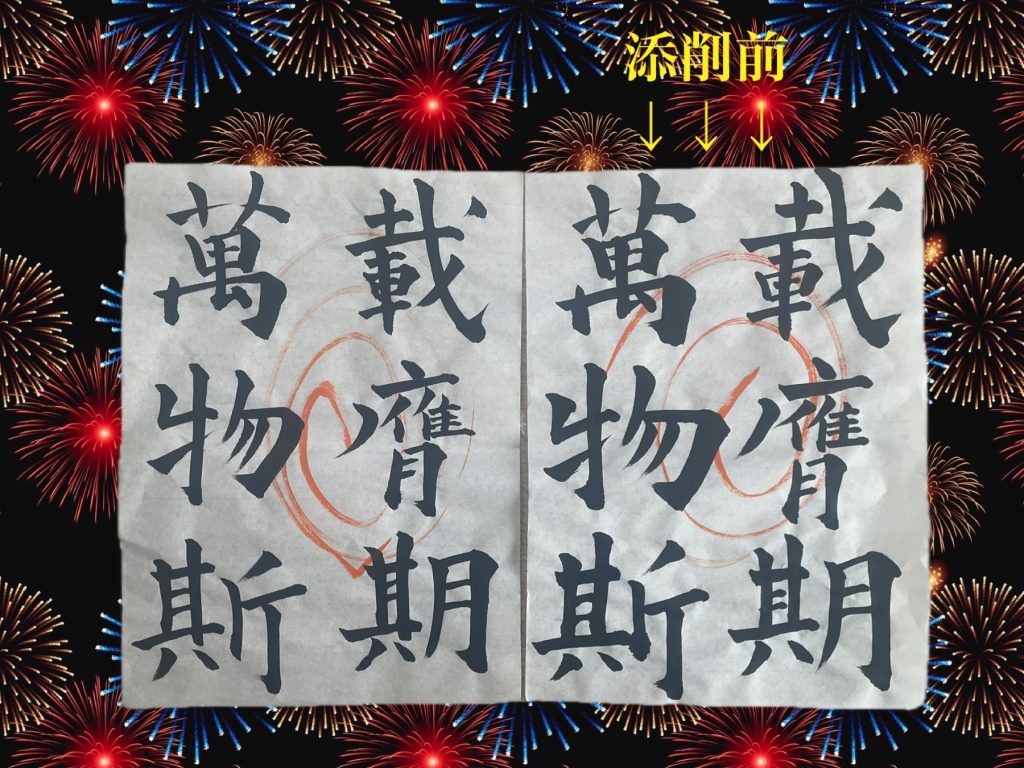 添削前
↓ ↓ ↓
載膺期
萬物斯
載膺期
萬物斯